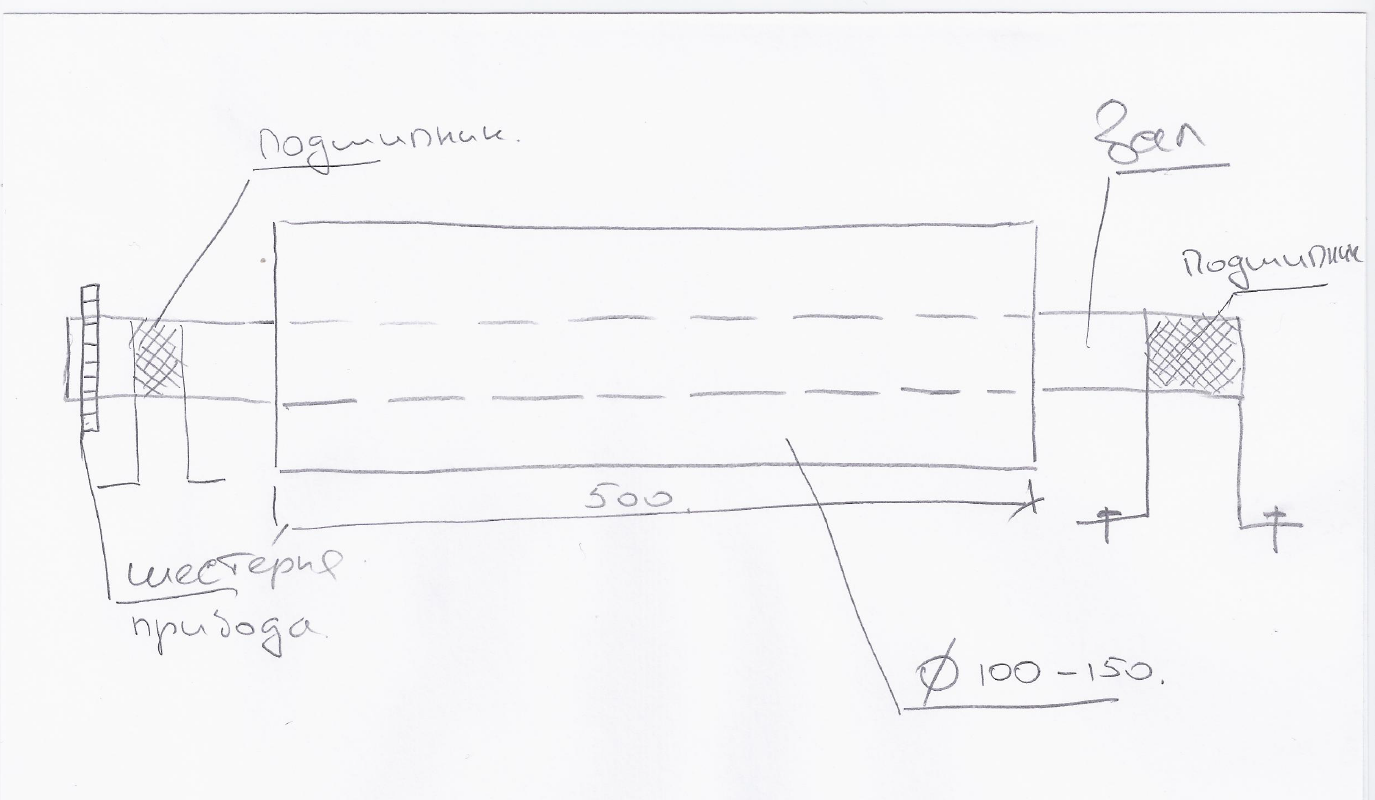 подшипник.
Вал
подшипник
500
шестерня
привода
Ø 100-150.